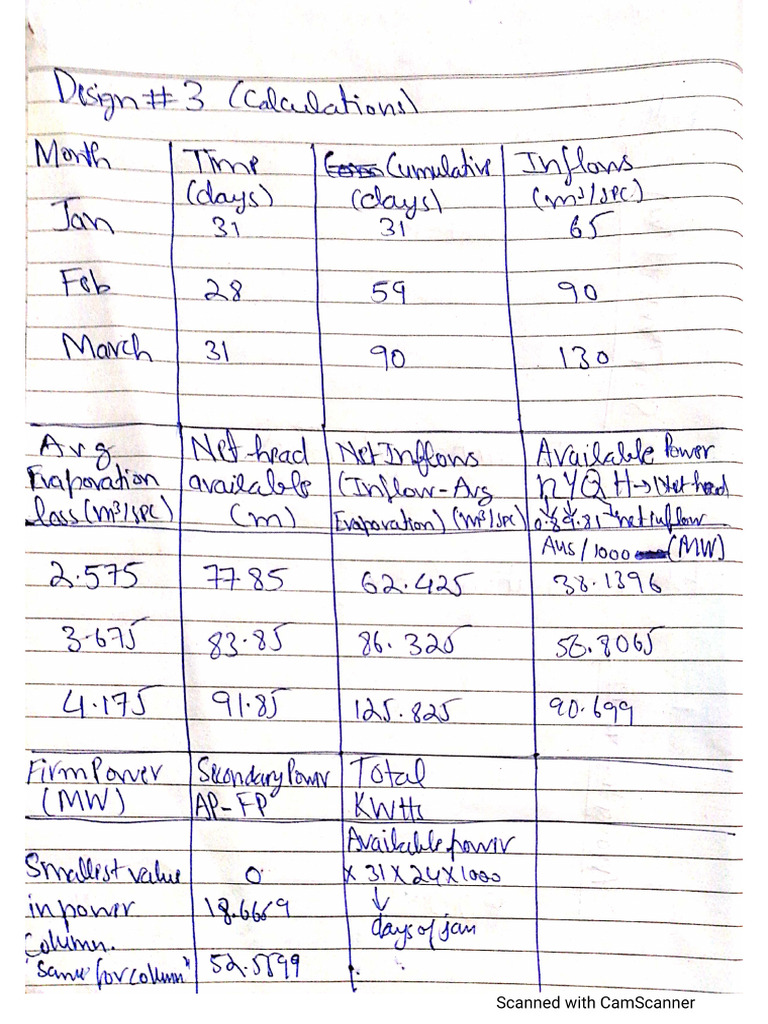 Design # 3 (Calculations)
Month Time Cumulative Inflows
(days) (days) (m³/sec)
Jan 31 31 65
Feb 28 59 90
March 31 90 130
Avg Net head Net Inflows Available Power
Evaporation available (Inflow-Avg ηγQH→Net head
loss (m³/sec) (m) Evaporation) (m³/sec) 0.8 9.81 net inflow
Ans/1000 (MW)
2.575 77.85 62.425 38.1396
3.675 83.85 86.325 56.8065
4.175 91.85 125.825 90.699
Firm Power Secondary Power Total
(MW) AP-FP KWHs
Available power
Smallest value 0 x 31 x 24 x 1000
↓
in power 18.6669
days of jan
Column.
"same for column" 52.5599
Scanned with CamScanner